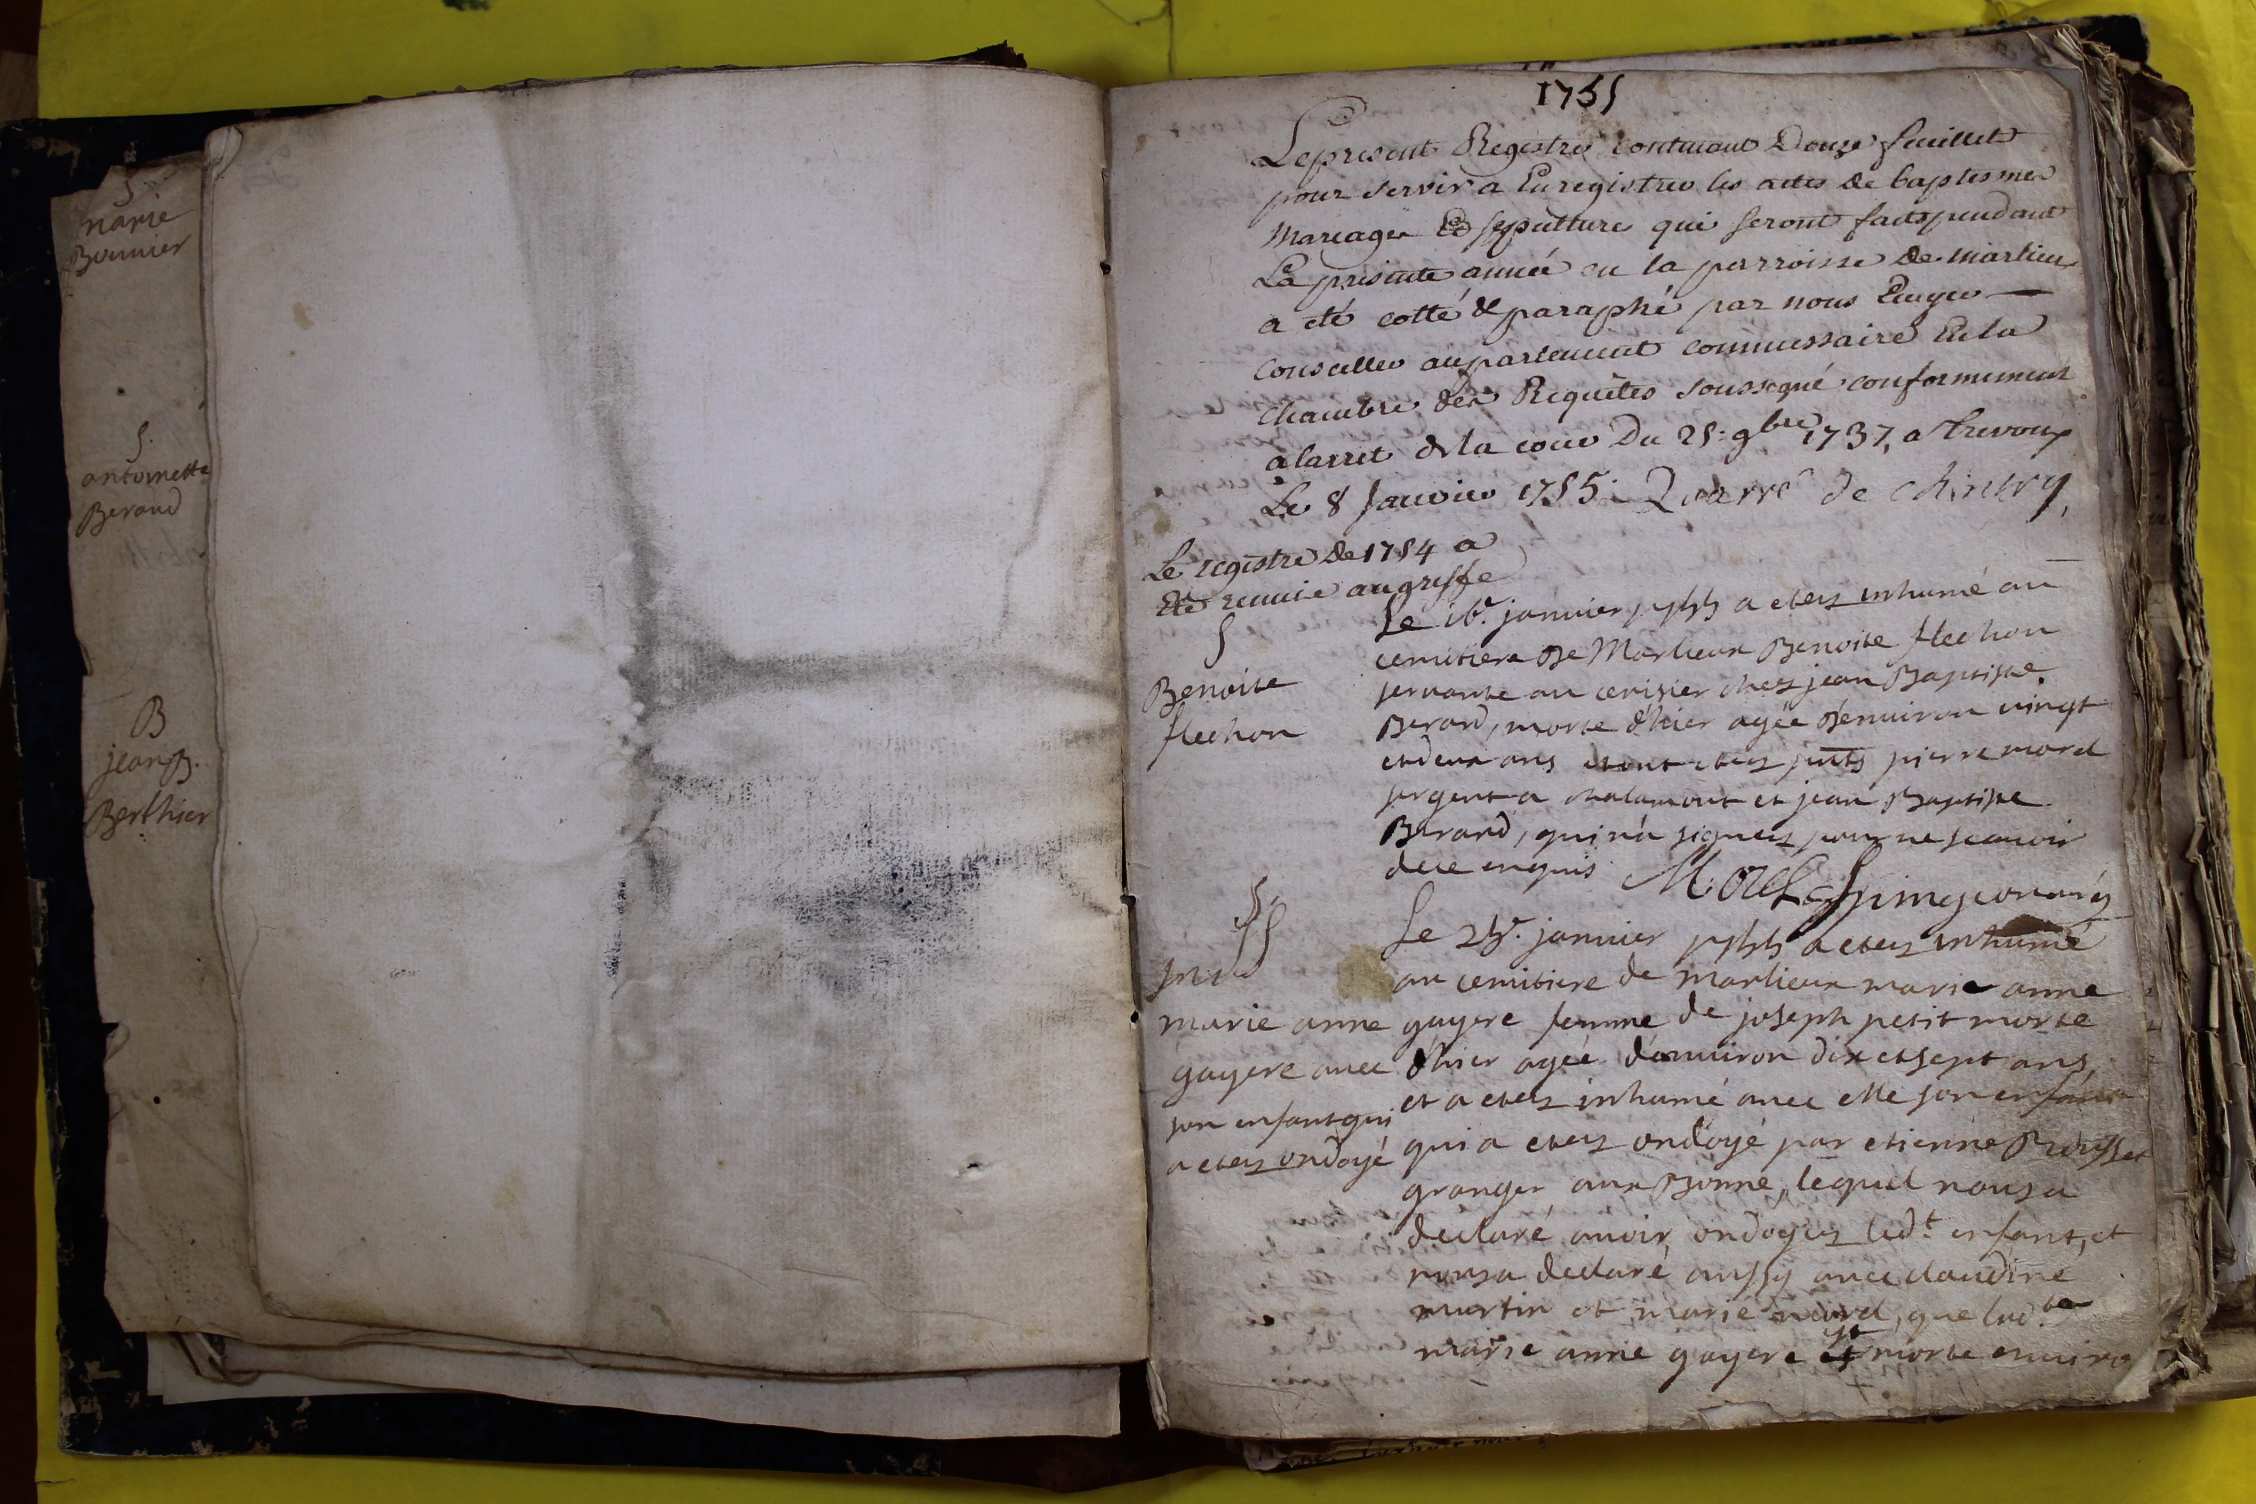 S
marie
Bounier
S.
antoinette
Berand
B
jean B.
Berthier
1755
Le present Registre contenant Douze feuillets
pour servir a Enregistrer les actes de baptesmes
Mariages Et sepulture qui seront faits pendant
La presente année en la parroisse de marlieu
a eté cotté & paraphé par nous Ecuyer
Conseiller au parlement commissaire En la
chambre des Requêtes soussigné conformement
a larret de la cour Du 25: 9bre 1737, a Trevoux
Le 8 Janvier 1755. Quarré de Chintry
Le registre de 1754 a
Eté remis au greffe
S
Benoite
flechon
Le 16e. janvier 1755 a etez inhumé au
cemitiere De Marlieux Benoite flechon
servante au cerisier chez jean Baptiste
Berard, morte d'hier agée d'environ vingt
et deux ans et ont etez pnts pierre morel
sergent a chalamont et jean Baptiste
Berard, qui n'a signez pour ne scavoir
de ce enquis Morel
S.
marie anne
gayere avec
son enfant qui
a etez ondoyé
Le 25e. janvier 1755 a etez inhumé
au cemitiere de marlieux marie anne
gayere femme de joseph petit morte
d'hier agée d'environ dix et sept ans,
et a etez inhumé avec elle son enfant
qui a etez ondoyé par etienne
granger aux Bonne, lequel nous a
declaré avoir ondoyez led.t enfant, et
nous a declaré aussy avec claudine
martin et marie morel, que lad.te
marie anne gayere est morte environ